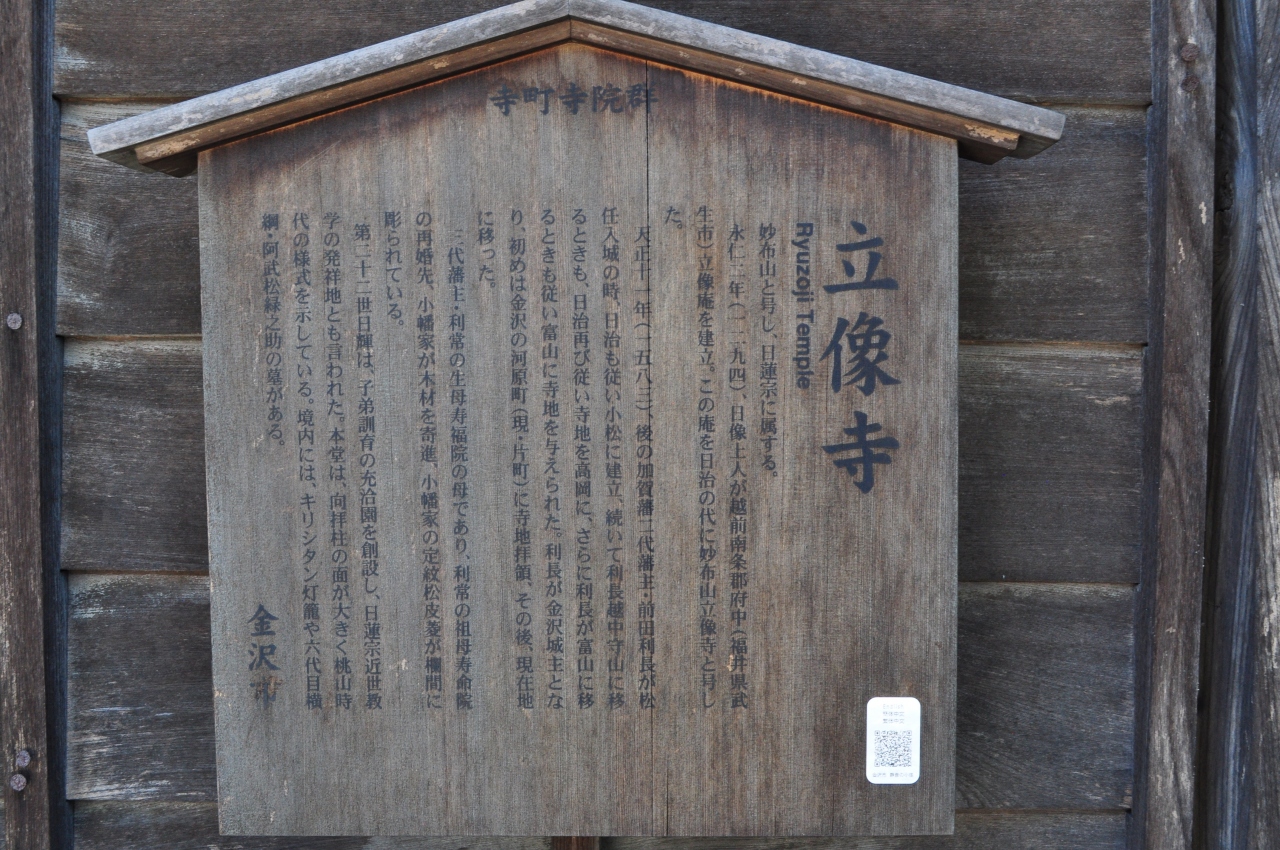 寺町寺院群
立像寺
Ryuzoji Temple
妙布山と号し、日蓮宗に属する。
永仁二年(一二九四)、日像上人が越前南条郡府中(福井県武
生市)立像庵を建立。この庵を日治の代に妙布山立像寺と号し
た。
天正十一年(一五八三)、後の加賀藩二代藩主・前田利長が松
任入城の時、日治も従い小松に建立、続いて利長越中守山に移
るときも、日治再び従い寺地を高岡に、さらに利長が富山に移
るときも従い富山に寺地を与えられた。利長が金沢城主とな
り、初めは金沢の河原町(現・片町)に寺地拝領、その後、現在地
に移った。
三代藩主・利常の生母寿福院の母であり、利常の祖母寿命院
の再婚先、小幡家が木材を寄進、小幡家の定紋松皮菱が欄間に
彫られている。
第二十二世日輝は、子弟訓育の充洽園を創設し、日蓮宗近世教
学の発祥地とも言われた。本堂は、向拝柱の面が大きく桃山時
代の様式を示している。境内には、キリシタン灯籠や六代目横
綱・阿武松緑之助の墓がある。
金沢市